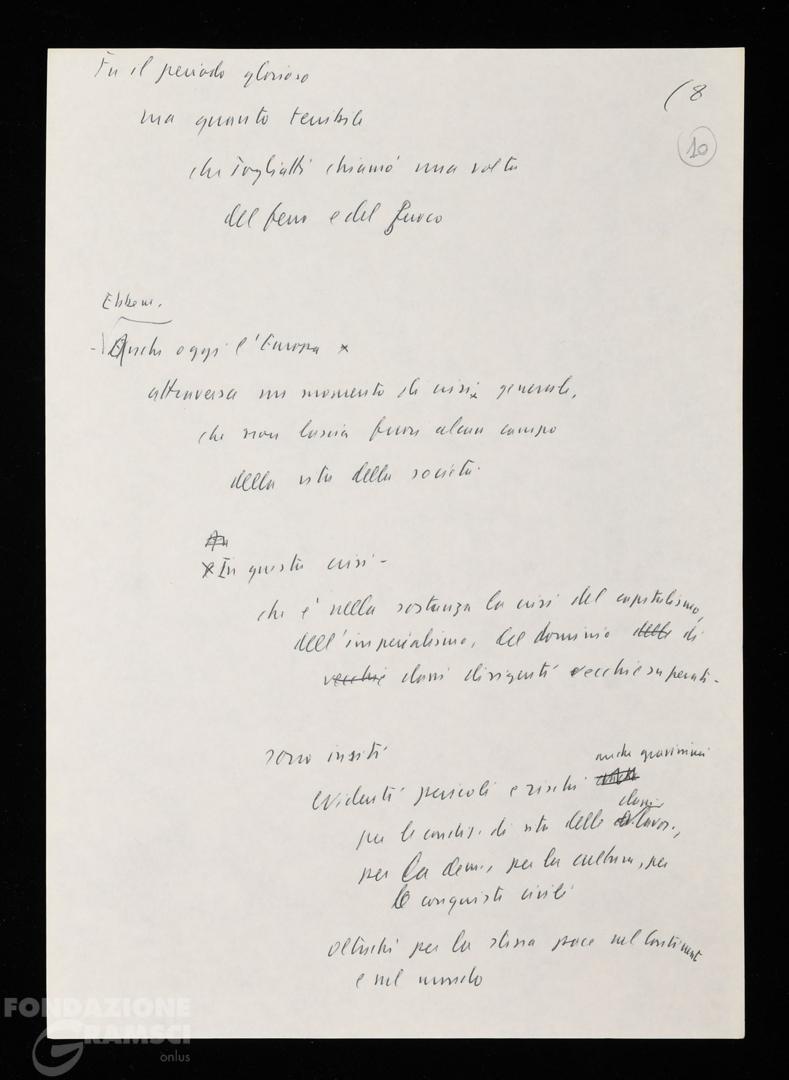 Fu il periodo glorioso
(8
10
ma quanto terribile
che Togliatti chiamò una volta
del ferro e del fuoco
Ebbene,
- Anche oggi l'Europa x
attraversa un momento di crisi x generale,
che non lascia fuori alcun campo
della vita della società.
x In questa crisi -
che è nella sostanza la crisi del capitalismo,
dell'imperialismo, del dominio delle di
vecchie classi dirigenti vecchie superati -
sono insiti
anche gravissimi
evidenti pericoli e rischi
classi
per le condiz. di vita delle lavor.,
per la dem., per la cultura, per
le conquiste civili
oltreché per la stessa pace nel Continente
e nel mondo
FONDAZIONE
GRAMSCI
onlus